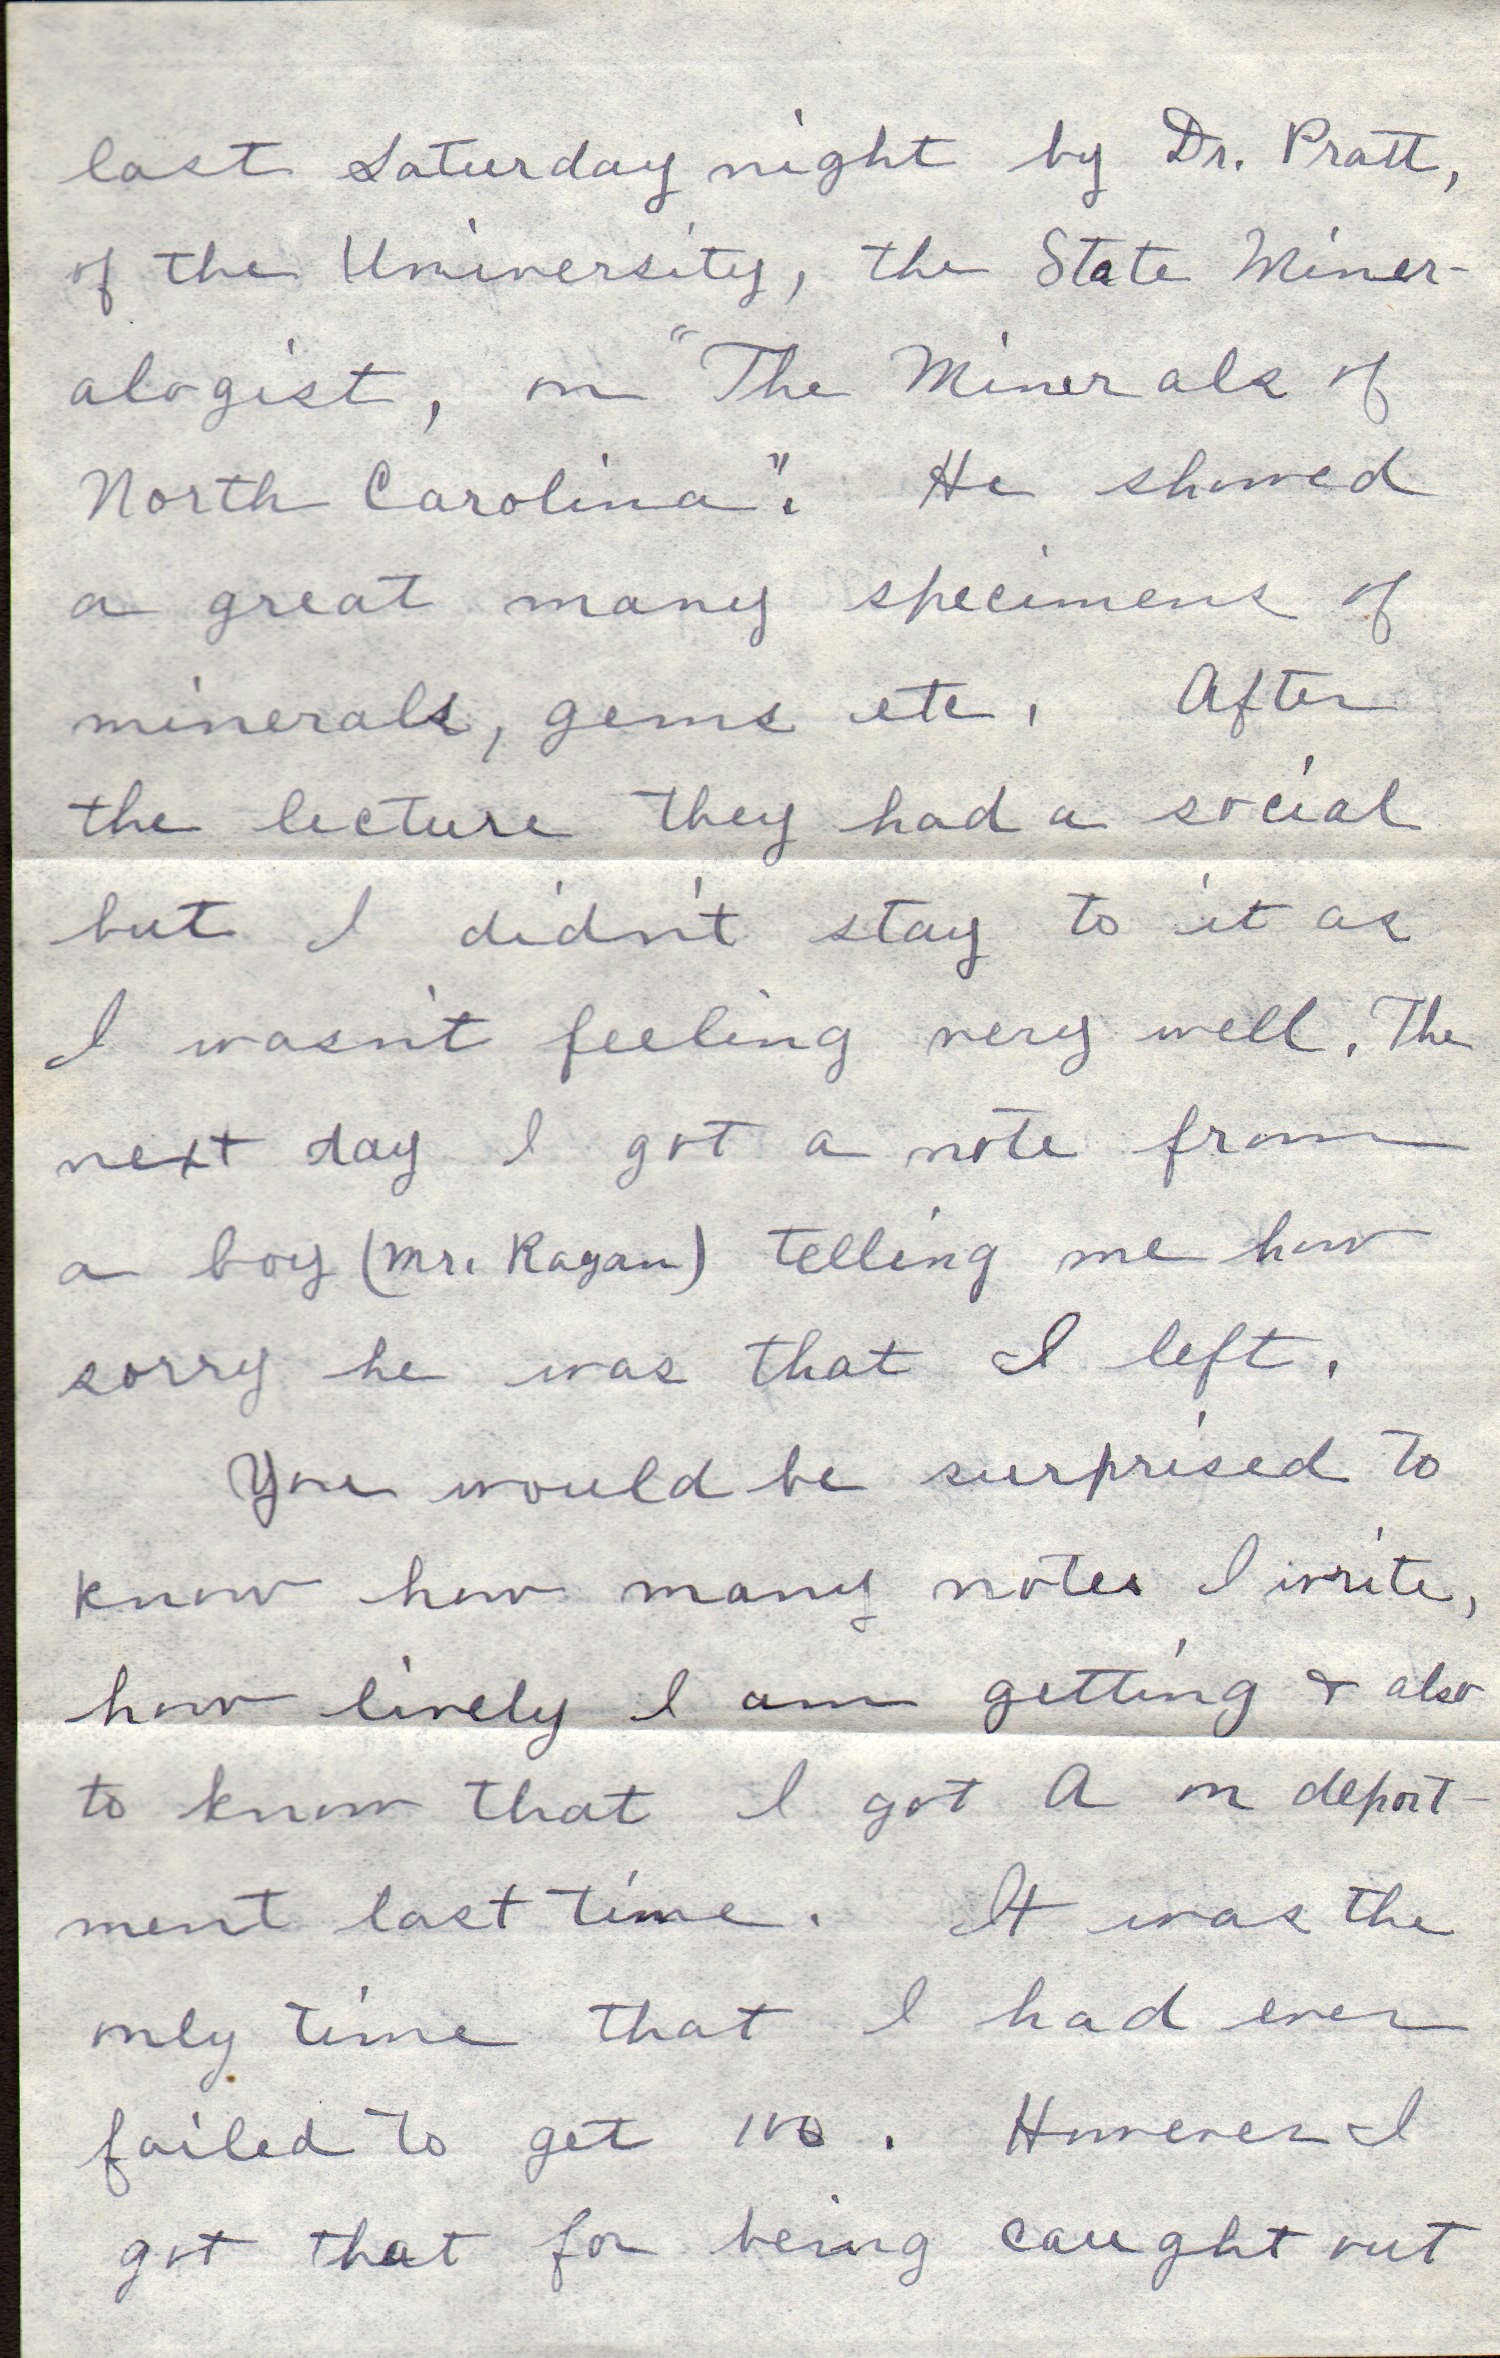 last Saturday night by Dr. Pratt,
of the University, the State Miner-
alogist, on "The Minerals of
North Carolina". He showed
a great many specimens of
minerals, gems etc. After
the lecture they had a social
but I didn't stay to it as
I wasn't feeling very well. The
next day I got a note from
a boy (Mr. Ragan) telling me how
sorry he was that I left.
You would be surprised to
know how many notes I write,
how lively I am getting & also
to know that I got A on deport-
ment last time. It was the
only time that I had ever
failed to get 100. However I
got that for being caught out